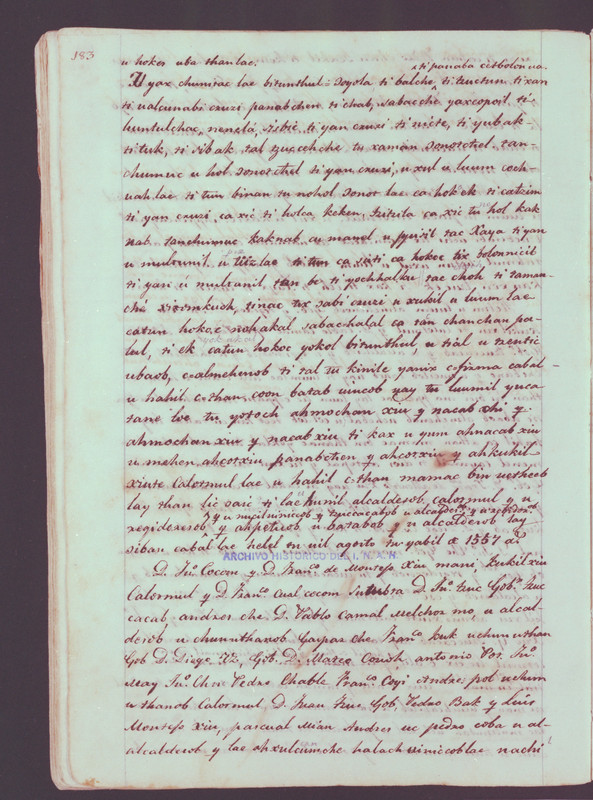 183
u hokes uba thanlae.
ti panaba citbolonna.
U yax chumsae lae bitunthul = soyola ti balche ti tuutun, ti xan
ti ualcunabi cruzi panabchen ti chab, sabacche yaxcopoil, ti
huntulchac, nenelá, sisbic, ti yan cruzi ti nicte, ti yubak-
ti tuk, ti sibak tal tzucchche tu xamán sonotchel, tan-
chumuc u hol sonotchel ti yan cruzi, u xul u luum coch-
uah lae ti tun binan tu nohol sonot lae ca hokek ti catzim
ti yan cruzi ca xic ti holca keken, ca xic tu hol kak
nab. tanchumuc kaknab cu manel u puzil tac Xaya ti yan
u multunil, u titz lae ti tun ca sati ca hokec tix bolonnicil
ti yan u multunil, tan be ti yochhalku tac choh ti taman-
che xicomkuch, sinac tix sabi cruzi u xukil u luum lae
catun hokoc nohakal, sabachalal ca tán chanchan pa-
lul, ti ek catun hokoc yokol bitunthul, u sial u nentic
ubaob, calmehenob ti tal tu kinile yanix c firma cabal-
u hahil cthan, coon batab uincob uay tu luumil yuca
tane loe tu yotoch ahmochan xiu y nacab xiu y
ahmochan xiu y nacab xiu ti kax u yum ahnacab xiu
u mehen, ahcotxiu panabchen y ahcotxiu y ahkukil
xiute Calotmul lae u hahil cthan mamac bin utheob
lay than lic saic ti lae hunil alcaldeob, calotmul y u
y u nucil uinicob y tzucucabob u alcaldeob y u regidor
regidoreob y ahpetieob u batabob y u alcaldeob lay
siban cabal lae helel en mil agosto tu yabil x 1557 aº
ARCHIVO HISTORICO DEL I. N. A. H.
D. Juº Cocom y D. Franco de Montejo Xiu mani Kukil xiu
Calotmul y D. Franco Cual cocom D. Juº Tuc Gob. Tuc
cacab, andres che D. Pablo Camal Melchor mo u alcal-
deob u chununthanob Gaspar che Franco kuk uchun uthan
Gob D. Diego Uz, Gob. D. Marco Couoh, antonio Pot, Juº
May Juº Che Pedro Chable Franco Coyi Andres pol uchun
uthanob Calotmul D. Juan Tuc Gob, Pedro Bak y Luis
Montejo xiu, pascual Mian Andres uc pedro coba u al-
alcaldeob y lae ahxulcumche halach uinicob lae nachi